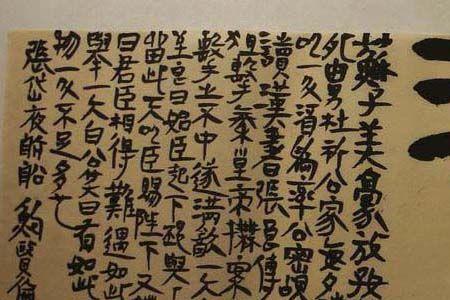 蘇子美豪放好
舅杜祁公家每夕
一斗為率公密覘
讀漢書張良傳
狙擊秦皇帝撫案
擊之不中遂滿飲一大
至良曰始臣起下邳與上
留此天以臣賜陛下又
曰君臣相得難遇如此
舉一大白公笑曰有如此
物一斗不足多也
張岱夜航船 鮑賢倫